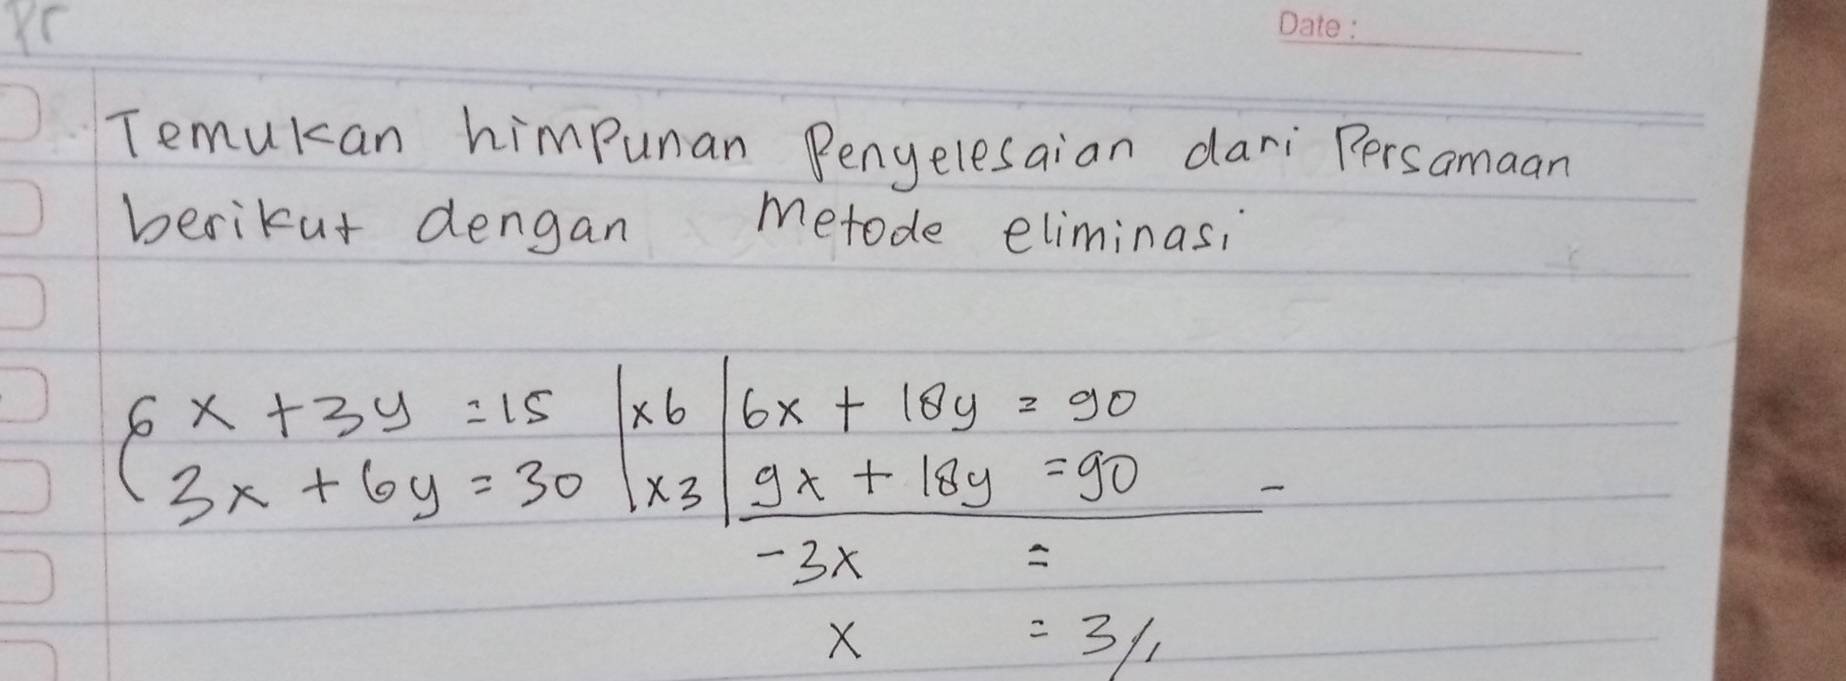 Pr
Date :
Temukan himpunan Penyelesaian dari Persamaan
berikut dengan metode eliminasi
6x + 3y = 15 | x6 | 6x + 18y = 90
3x + 6y = 30 | x3 | 9x + 18y = 90 -
-3x =
x = 3//